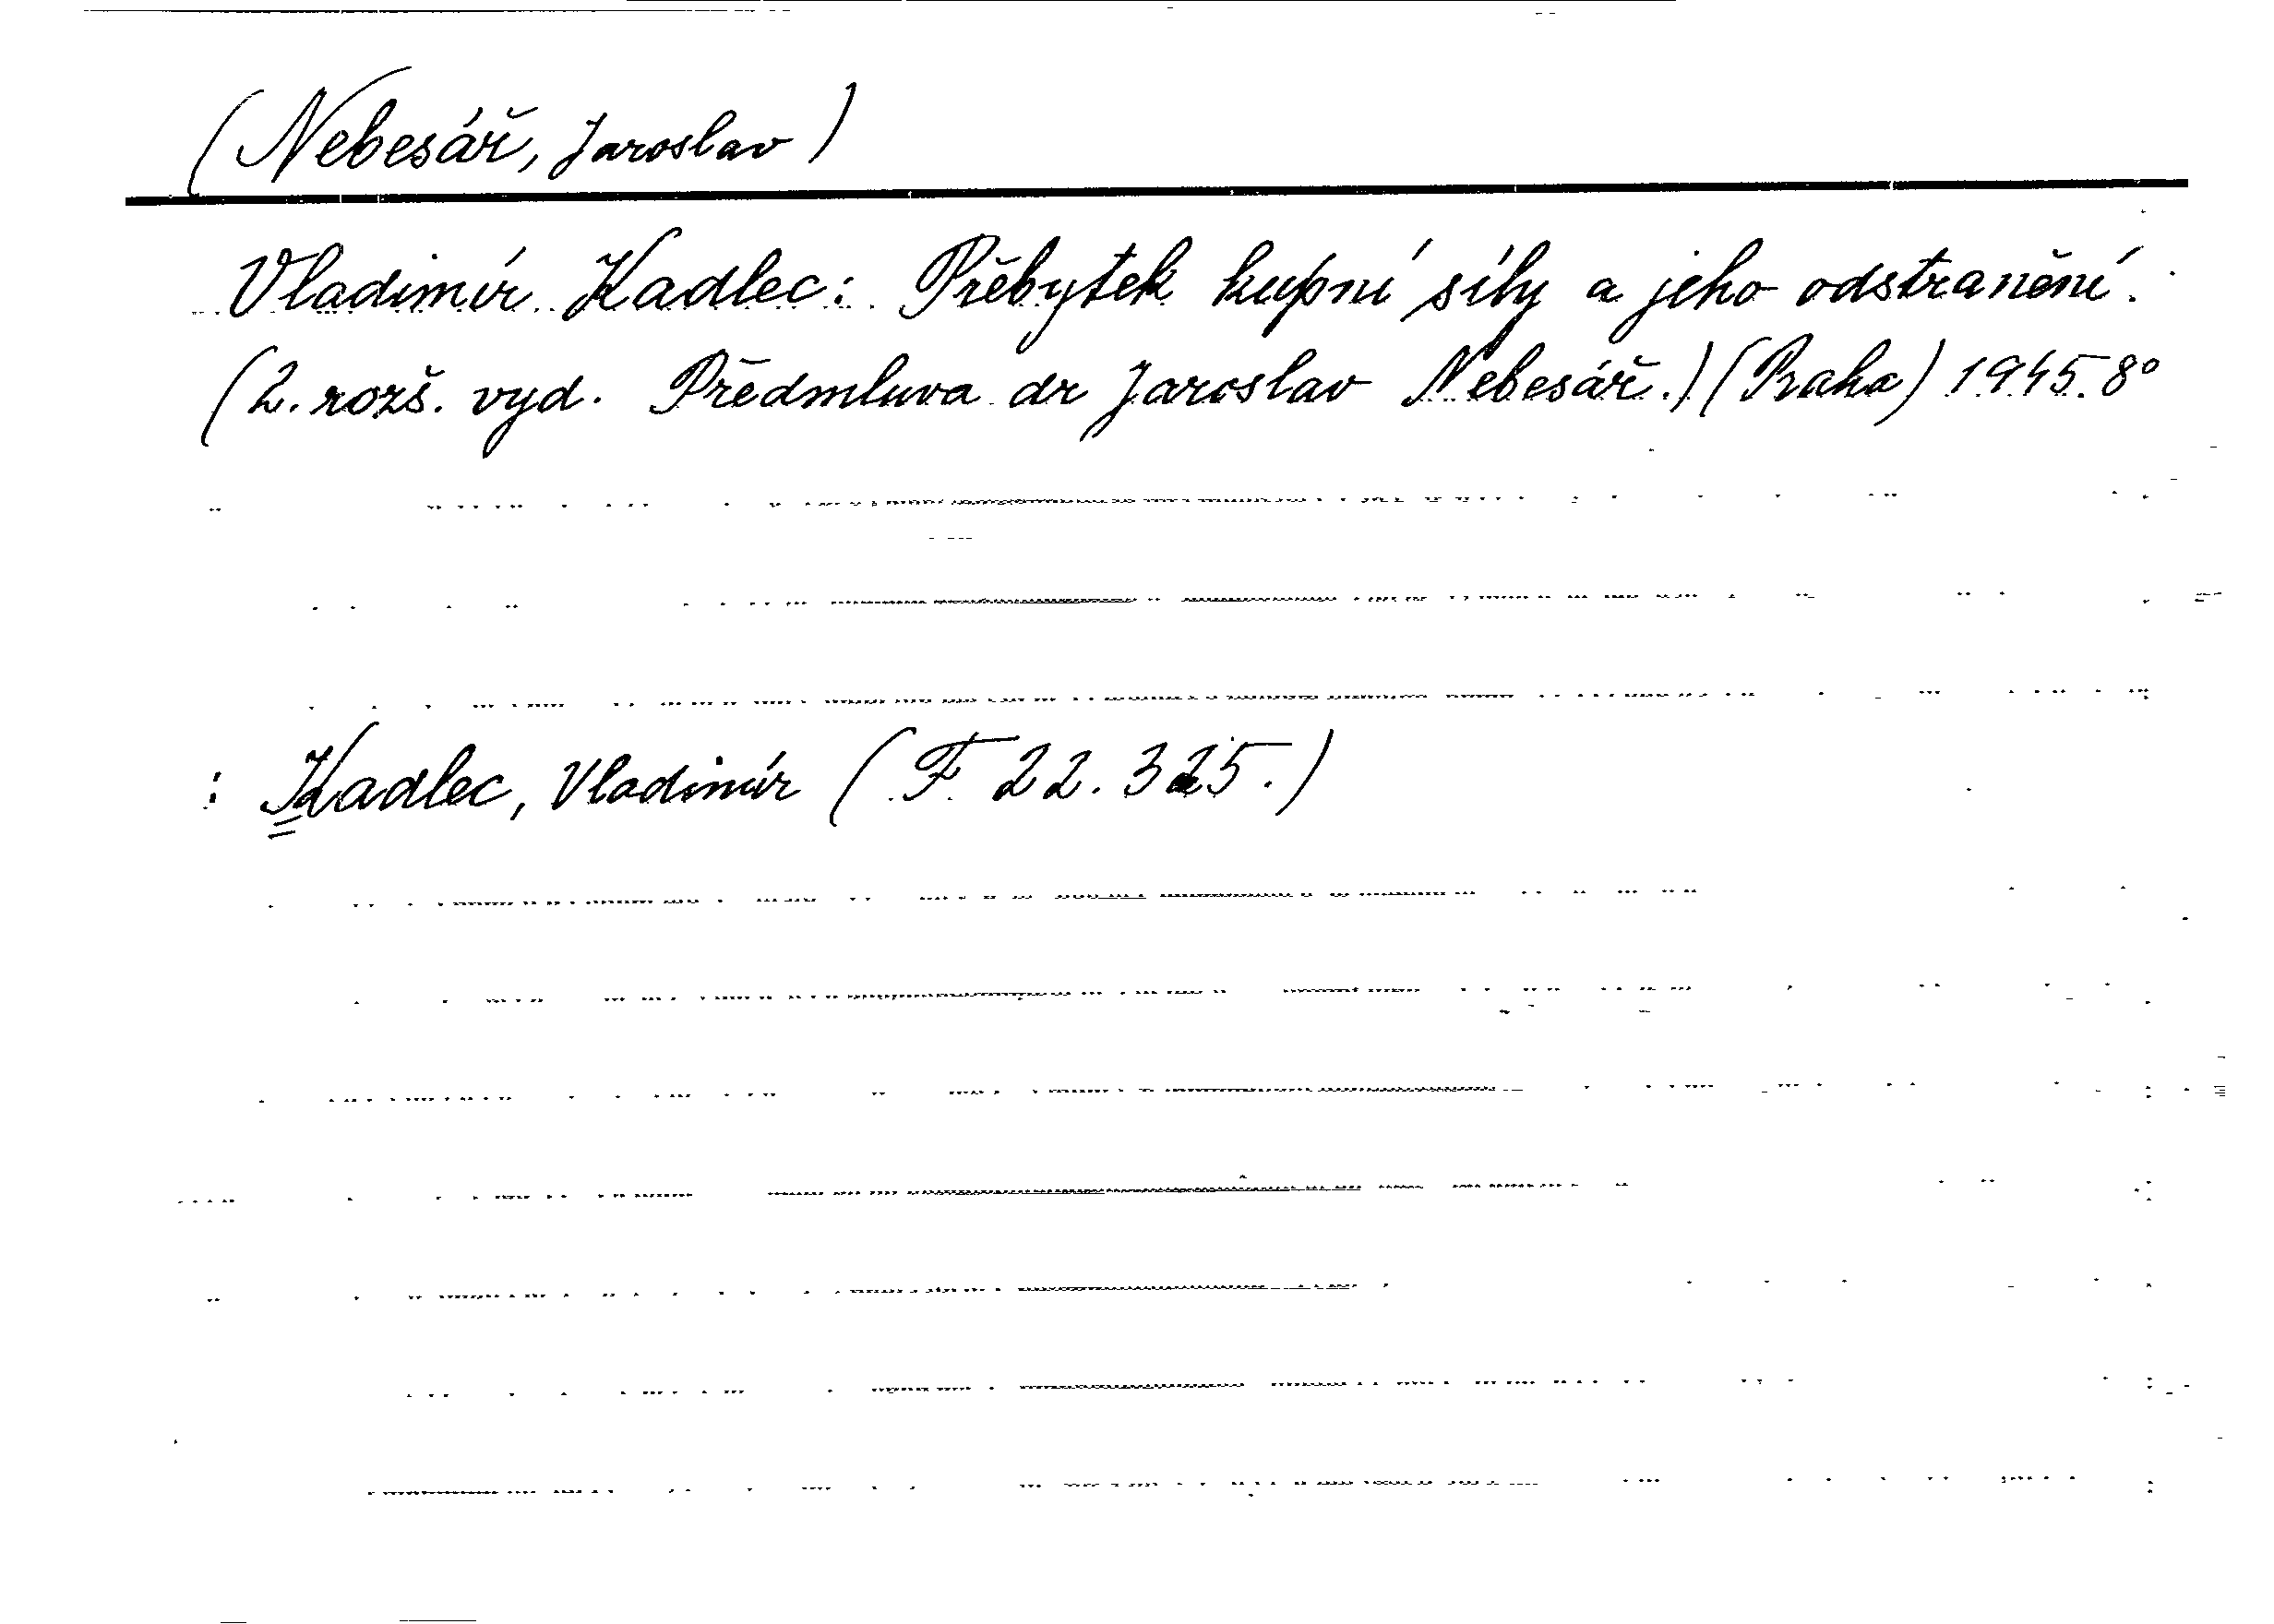 (Nebesář, Jaroslav)
Vladimír Kadlec: Přebytek kupní síly a jeho odstranění.
(2. rozš. vyd. Předmluva dr Jaroslav Nebesář.) (Praha) 1945. 8°
: Kadlec, Vladimír (F 22.325.)